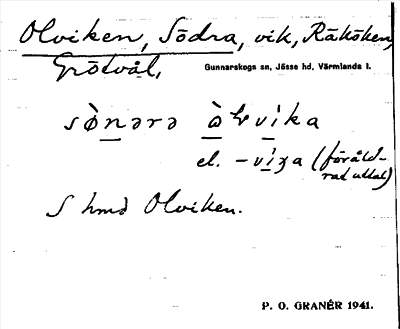 Olviken, Södra, vik, Räksken,
Grötvål, Gunnarskogs sn, Jösse hd, Värmlands l.
sø̀nərə òɽvika
el. -viʒa (föråld-
rad uttal)
S hmd Olviken.
P. O. GRANÉR 1941.